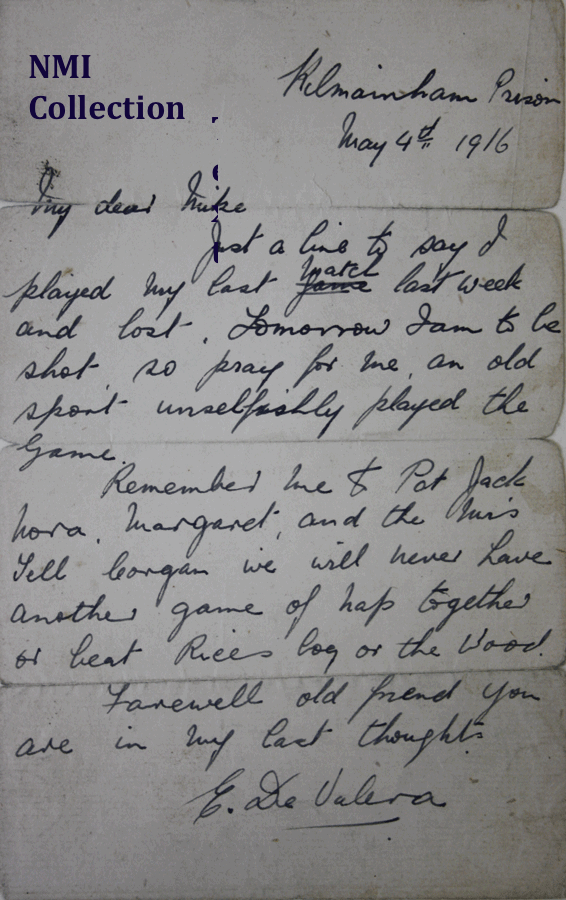 NMI
Collection
Kilmainham Prison
May 4th 1916
My dear Mike
Just a line to say I
played my last game match last week
and lost. Tomorrow I am to be
shot, so pray for me, an old
sport unselfishly played the
Game.
Remember me to Pat Jack
Nora, Margaret, and the Mrs
Tell Corgan we will never have
another game of nap together
or beat Rices bog or the Wood.
Farewell old friend you
are in my last thoughts
E. De Valera